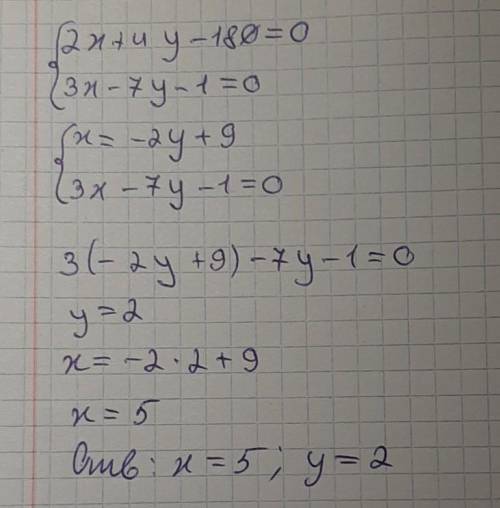 2x+4y-180=0
3x-7y-1=0
x=-2y+9
3x-7y-1=0
3(-2y+9)-7y-1=0
y=2
x=-2·2+9
x=5
Отв: x=5; y=2